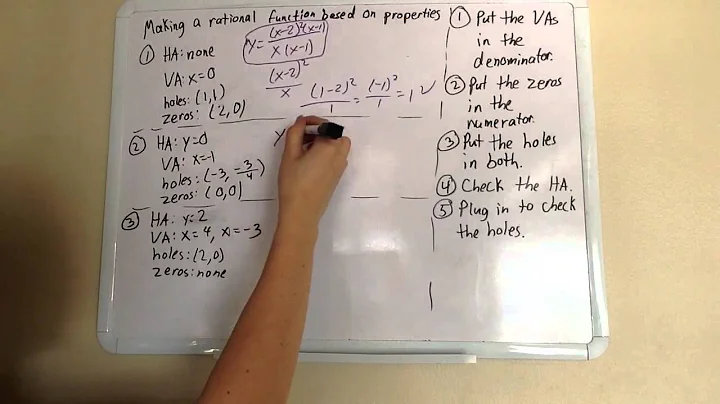 Making a rational function based on properties
① HA: none
VA: x=0
holes: (1,1)
zeros: (2,0)
y = (x-2)²(x-1) / x(x-1)
(x-2)² / x
(1-2)² / 1 = (-1)² / 1 = 1 ✓
② HA: y=0
VA: x=-1
holes: (-3, -3/4)
zeros: (0,0)
y
③ HA: y=2
VA: x=4, x=-3
holes: (2,0)
zeros: none
① Put the VAs
in the
denominator.
② Put the zeros
in the
numerator.
③ Put the holes
in both.
④ Check the HA.
⑤ Plug in to check
the holes.